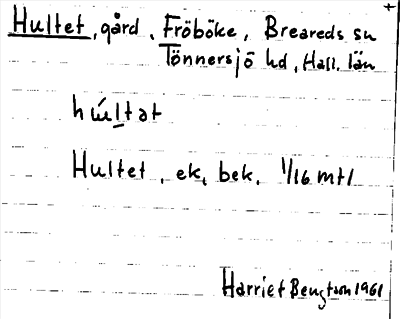 Hultet, gård, Fröböke, Breareds sn
Tönnersjö hd, Hall. län
hú̀ltat
Hultet, ek, bek, 1/16 mtl
Harriet Bengtson 1961